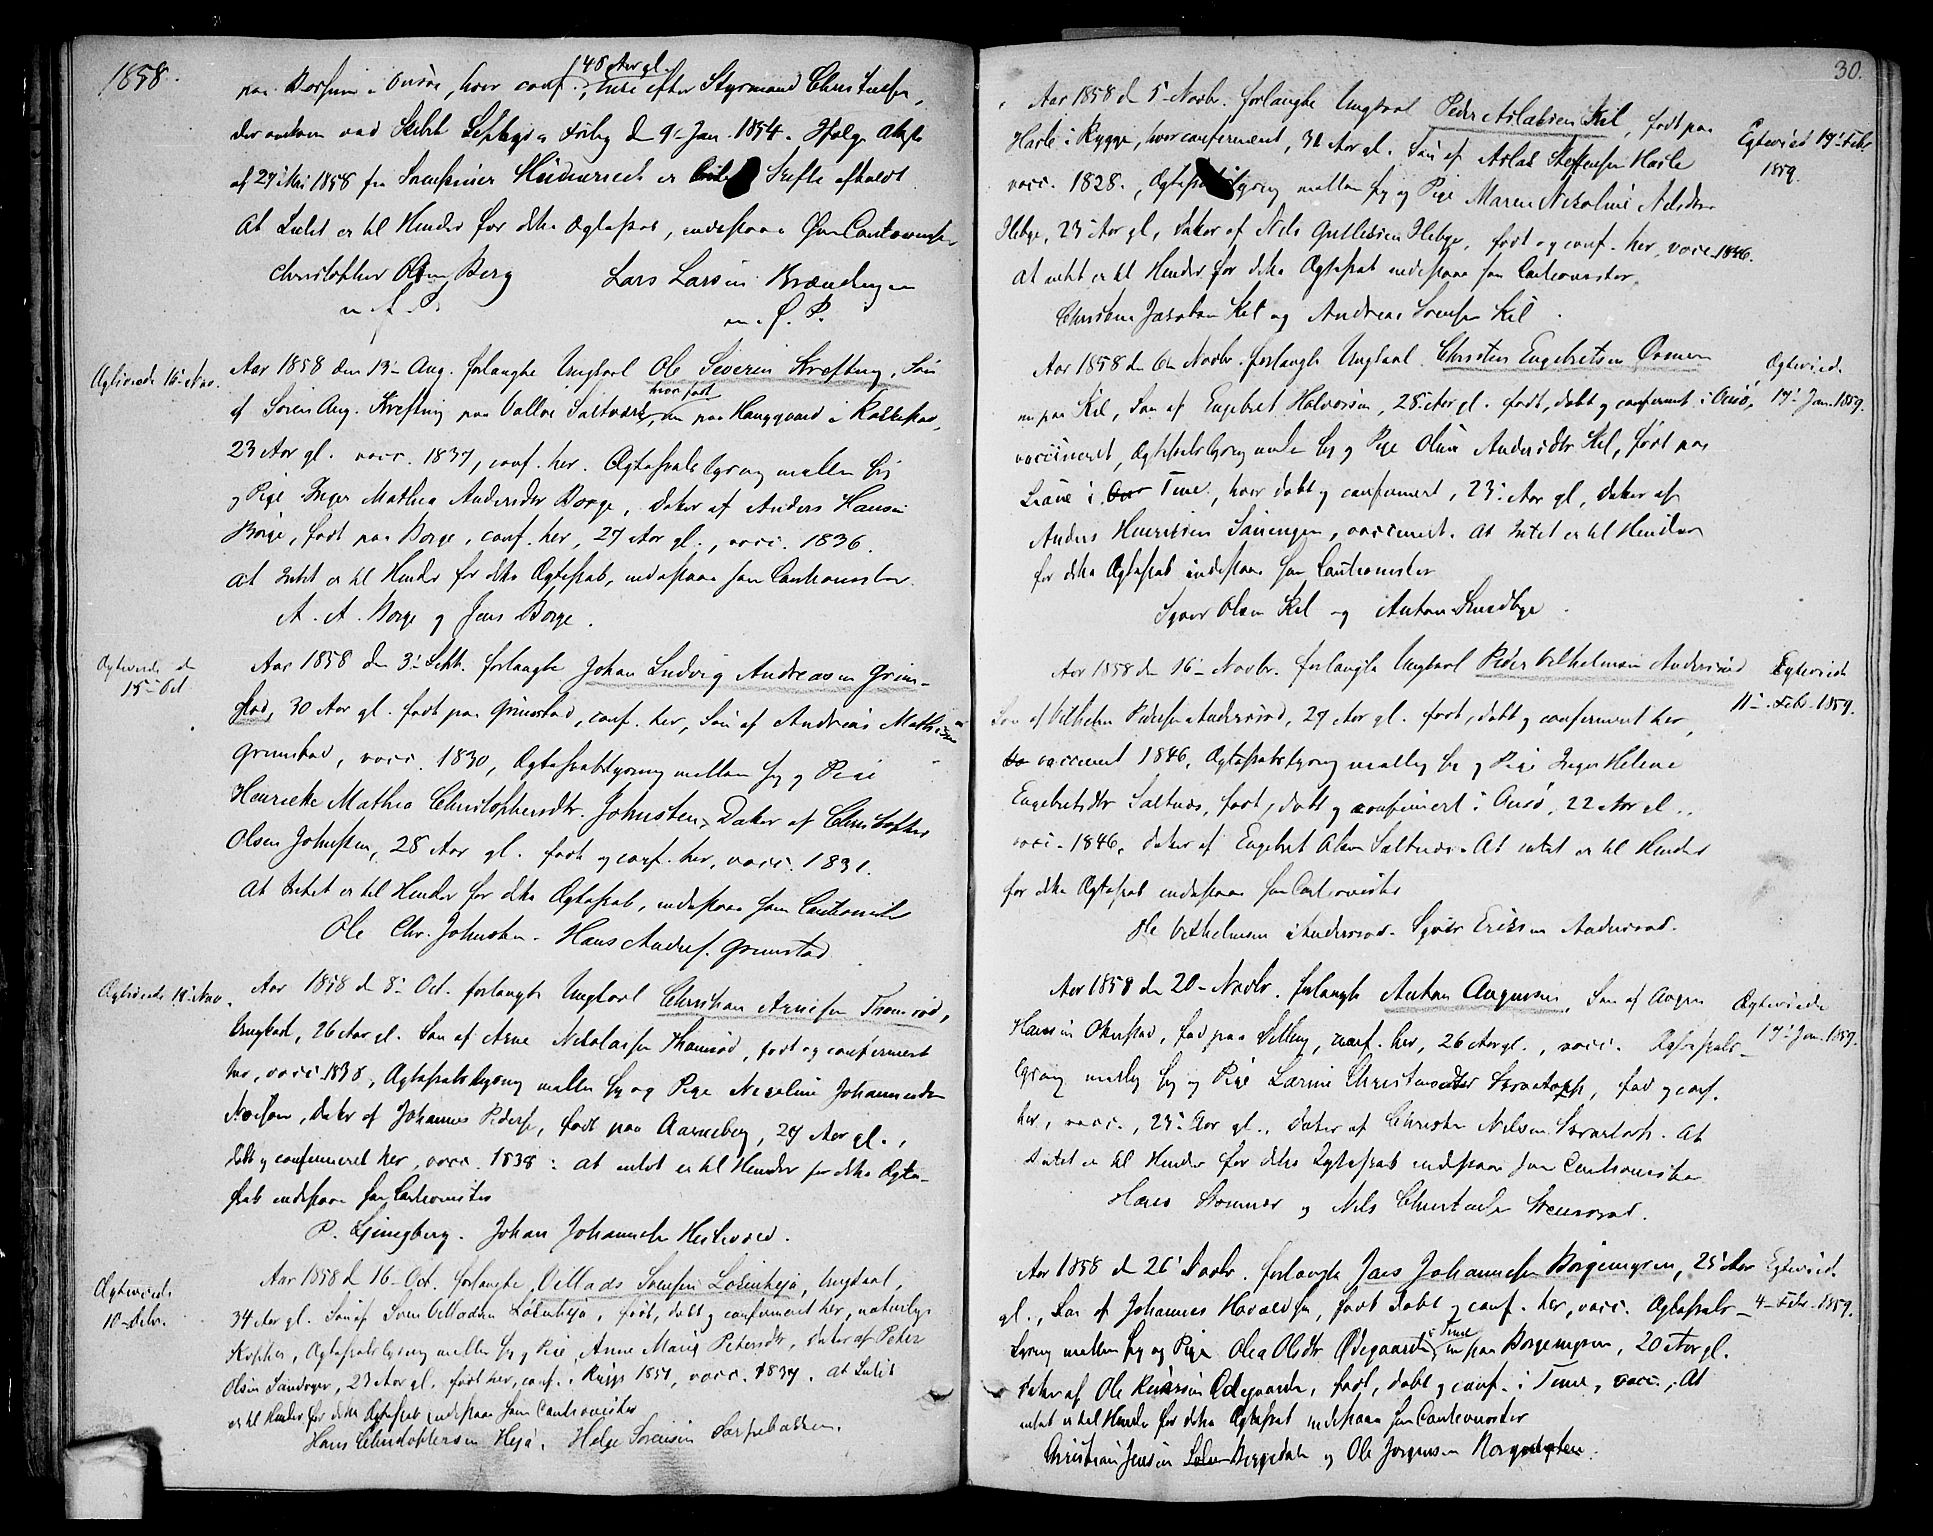 1858.
paa Borshuus i Onsøe, hvor conf., 48 Aar gl. Enke efter Styrmand Christensen,
der omkom ved Skibet d 9- Jan. 1854. Ifølge Attest
af 27' Mai 1858 fra er Skifte afholdt.
At Intet er til Hinder for dette Ægteskab, indestaae som Cautionister
Christopher Olsen Berg Lars Larsen Brændengen
m. f. P. m. f. P.
Ægteviede 16- Nov.
Aar 1858 den 13- Aug. forlangte Ungkarl Ole Severin Krefting, Søn
af Søren Aug. Krefting paa Valløe Saltværk, hvor født, nu paa Hauggaard i Rakkestad,
23 Aar gl. vacc. 1837, conf. her. Ægteskabslysning mellem sig
og Pige Inger Mathea Andersdtr Borge, Datter af Anders Hansen
Borge, født paa Borge, conf. her, 27 Aar gl., vacc. 1836.
At Intet er til Hinder for dette Ægteskab, indestaae som Cautionister
A. A. Borge og Jens Borge.
Ægteviede d
15- Oct
Aar 1858 den 3- Septb. forlangte Johan Ludvig Andreasen Grim-
stad, 30 Aar gl. født paa Grimstad, conf. her, Søn af Andreas Mathisen
Grimstad, vacc. 1830, Ægteskabslysning mellem sig og Pige
Henrikke Mathea Christophersdtr. Johnsten, Datter af Christopher
Olsen Johnsten, 28 Aar gl. født og conf. her, vacc. 1831.
At Intet er til Hinder for dette Ægteskab, indestaae som Cautionister
Ole Chr. Johnsten. Hans Andres. Grimstad
Ægteviede 18- Nov.
Aar 1858 d 8- Oct. forlangte Ungkarl Christian Arnesen Thomsød,
Ungkarl, 26 Aar gl. Søn af Arne Nikolaisen Thomsød, født og confirmeret
her, vacc. 1838, Ægteskabslysning mellem sig og Pige Nicoline Johannesdtr
Datter af Johannes Peders., født paa Aarneberg, 27 Aar gl.,
døbt og confirmeret her, vacc. 1838: at intet er til Hinder for dette Ægte-
skab indestaae som Cautionister
P. Ljungberg. Johan Johannesen
Ægteviede
10- Debr.
Aar 1858 d 16- Oct. forlangte Villads Svensen Løkenhejø, Ungkarl,
34 Aar gl. Søn af Sven Villadsen Løkenhejø, født, døbt og confirmeret her, naturlige
Kopper, Ægteskabslysning mellem sig og Pige Anne Marie Petersdtr, Datter af Peter
Olsen 23 Aar gl. født her, conf. i Rygge 1851, vacc. 1837. At Intet
er til Hinder for dette Ægteskab indestaae som Cautionister
Hans Christophersen Hejø. Helge Sørensen Sarpebakken.
30.
Aar 1858 d 5- Novbr. forlangte Ungkarl Peder Aslaksen Kil, født paa
Harle i Rygge, hvor confirmeret, 31 Aar gl. Søn af Aslak Steffensen Harle
vacc. 1828., Ægteskabslysning mellem sig og Pige Maren Nikoline Nilsdtr
Hebye, 23 Aar gl., Datter af Nils Gulliksen Hebye, født og conf. her, vacc. 1846.
At intet er til Hinder for dette Ægteskab indestaae som Cautionister,
Christian Jacobsen Kil og Andreas Svensen Kil.
Egteviet 17' Febr.
1859.
Aar 1858 d 6te Novbr. forlangte Ungkarl Christen Engebretsen
nu paa Kil, Søn af Engebret Halvorsen, 28 Aar gl. født, døbt og confirmeret i Onsø,
vaccineret, Ægteskabslysning mellem sig og Pige Oline Andersdtr Kil, født paa
i Tune, hvor døbt og confirmeret, 23- Aar gl., Datter af
Anders Henriksen vaccineret. At Intet er til Hinder
for dette Ægteskab indestaae som Cautionister
Syver Olsen Kil og Anton Smedbye.
Egteviede
17- Jan. 1859.
Aar 1858 d 16- Novbr. forlangte Ungkarl Peder Vilhelmsen Andersrød
Søn af Vilhelm Pedersen Andersrød, 27 Aar gl. født, døbt og confirmeret her,
vaccineret 1846, Ægteskabslysning mellem sig og Pige Inger Helene
Engebretsdtr Saltnæs, født, døbt og confirmeret i Onsø, 22 Aar gl.,
vacc. 1846, Datter af Engebret Olsen Saltnæs. At intet er til Hinder
for dette Ægteskab indestaae som Cautionister
Ole Vilhelmsen Andersrød. Syver Eriksen Andersrød.
Egteviede
11- Febr. 1859.
Aar 1858 d 20- Novbr. forlangte Anton Augensen, Søn af Augen
Hansen født paa conf. her, 26 Aar gl., vacc. Ægteskabs-
lysning mellem sig og Pige Larine Christensdtr født og conf.
her, vacc., 23- Aar gl., Datter af Christen Nilsen At
Intet er til Hinder for dette Egteskab indestaae som Cautionister
Hans og Nils Christensen
Egteviede
17' Jan. 1859.
Aar 1858 d 26' Novbr. forlangte Jens Johannesen Borgemyren, 25 Aar
gl., Søn af Johannes født døbt og conf. her, vacc. Ægteskabs-
lysning mellem sig og Pige Olea Olsdtr Ødegaarden i Tune, nu paa Borgemyren, 20 Aar gl.
Datter af Ole Ødegaarden, født, døbt og conf. i Tune, vacc.; At
intet er til Hinder for dette Ægteskab indestaae som Cautionister
Christian Jensen og Ole Jørgensen
Egteviede
4- Febr. 1859.